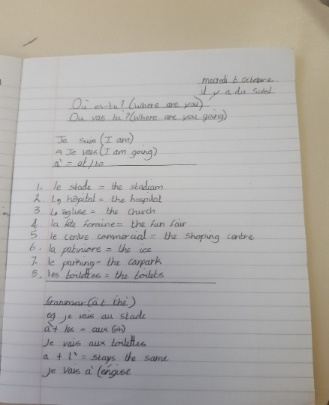 mercredi 6 octobre
il y a du soleil
Où es-tu? (where are you)
Ou vas tu? (where are you going)
Je suis (I am)
Je vais (I am going)
à = at/to
1. le stade = the stadium
2. L'hôpital = the hospital
3. L'église = the church
4. la fête foraine = the fun fair
5. le centre commercial = the shoping centre
6. la patinoire = the ice
7. le parking = the carpark
8. les toilettes = the toilets
Grammar (at the)
eg je vais au stade
à + les = aux
Je vais aux toilettes
a + l' = stays the same
Je vais à l'eglise